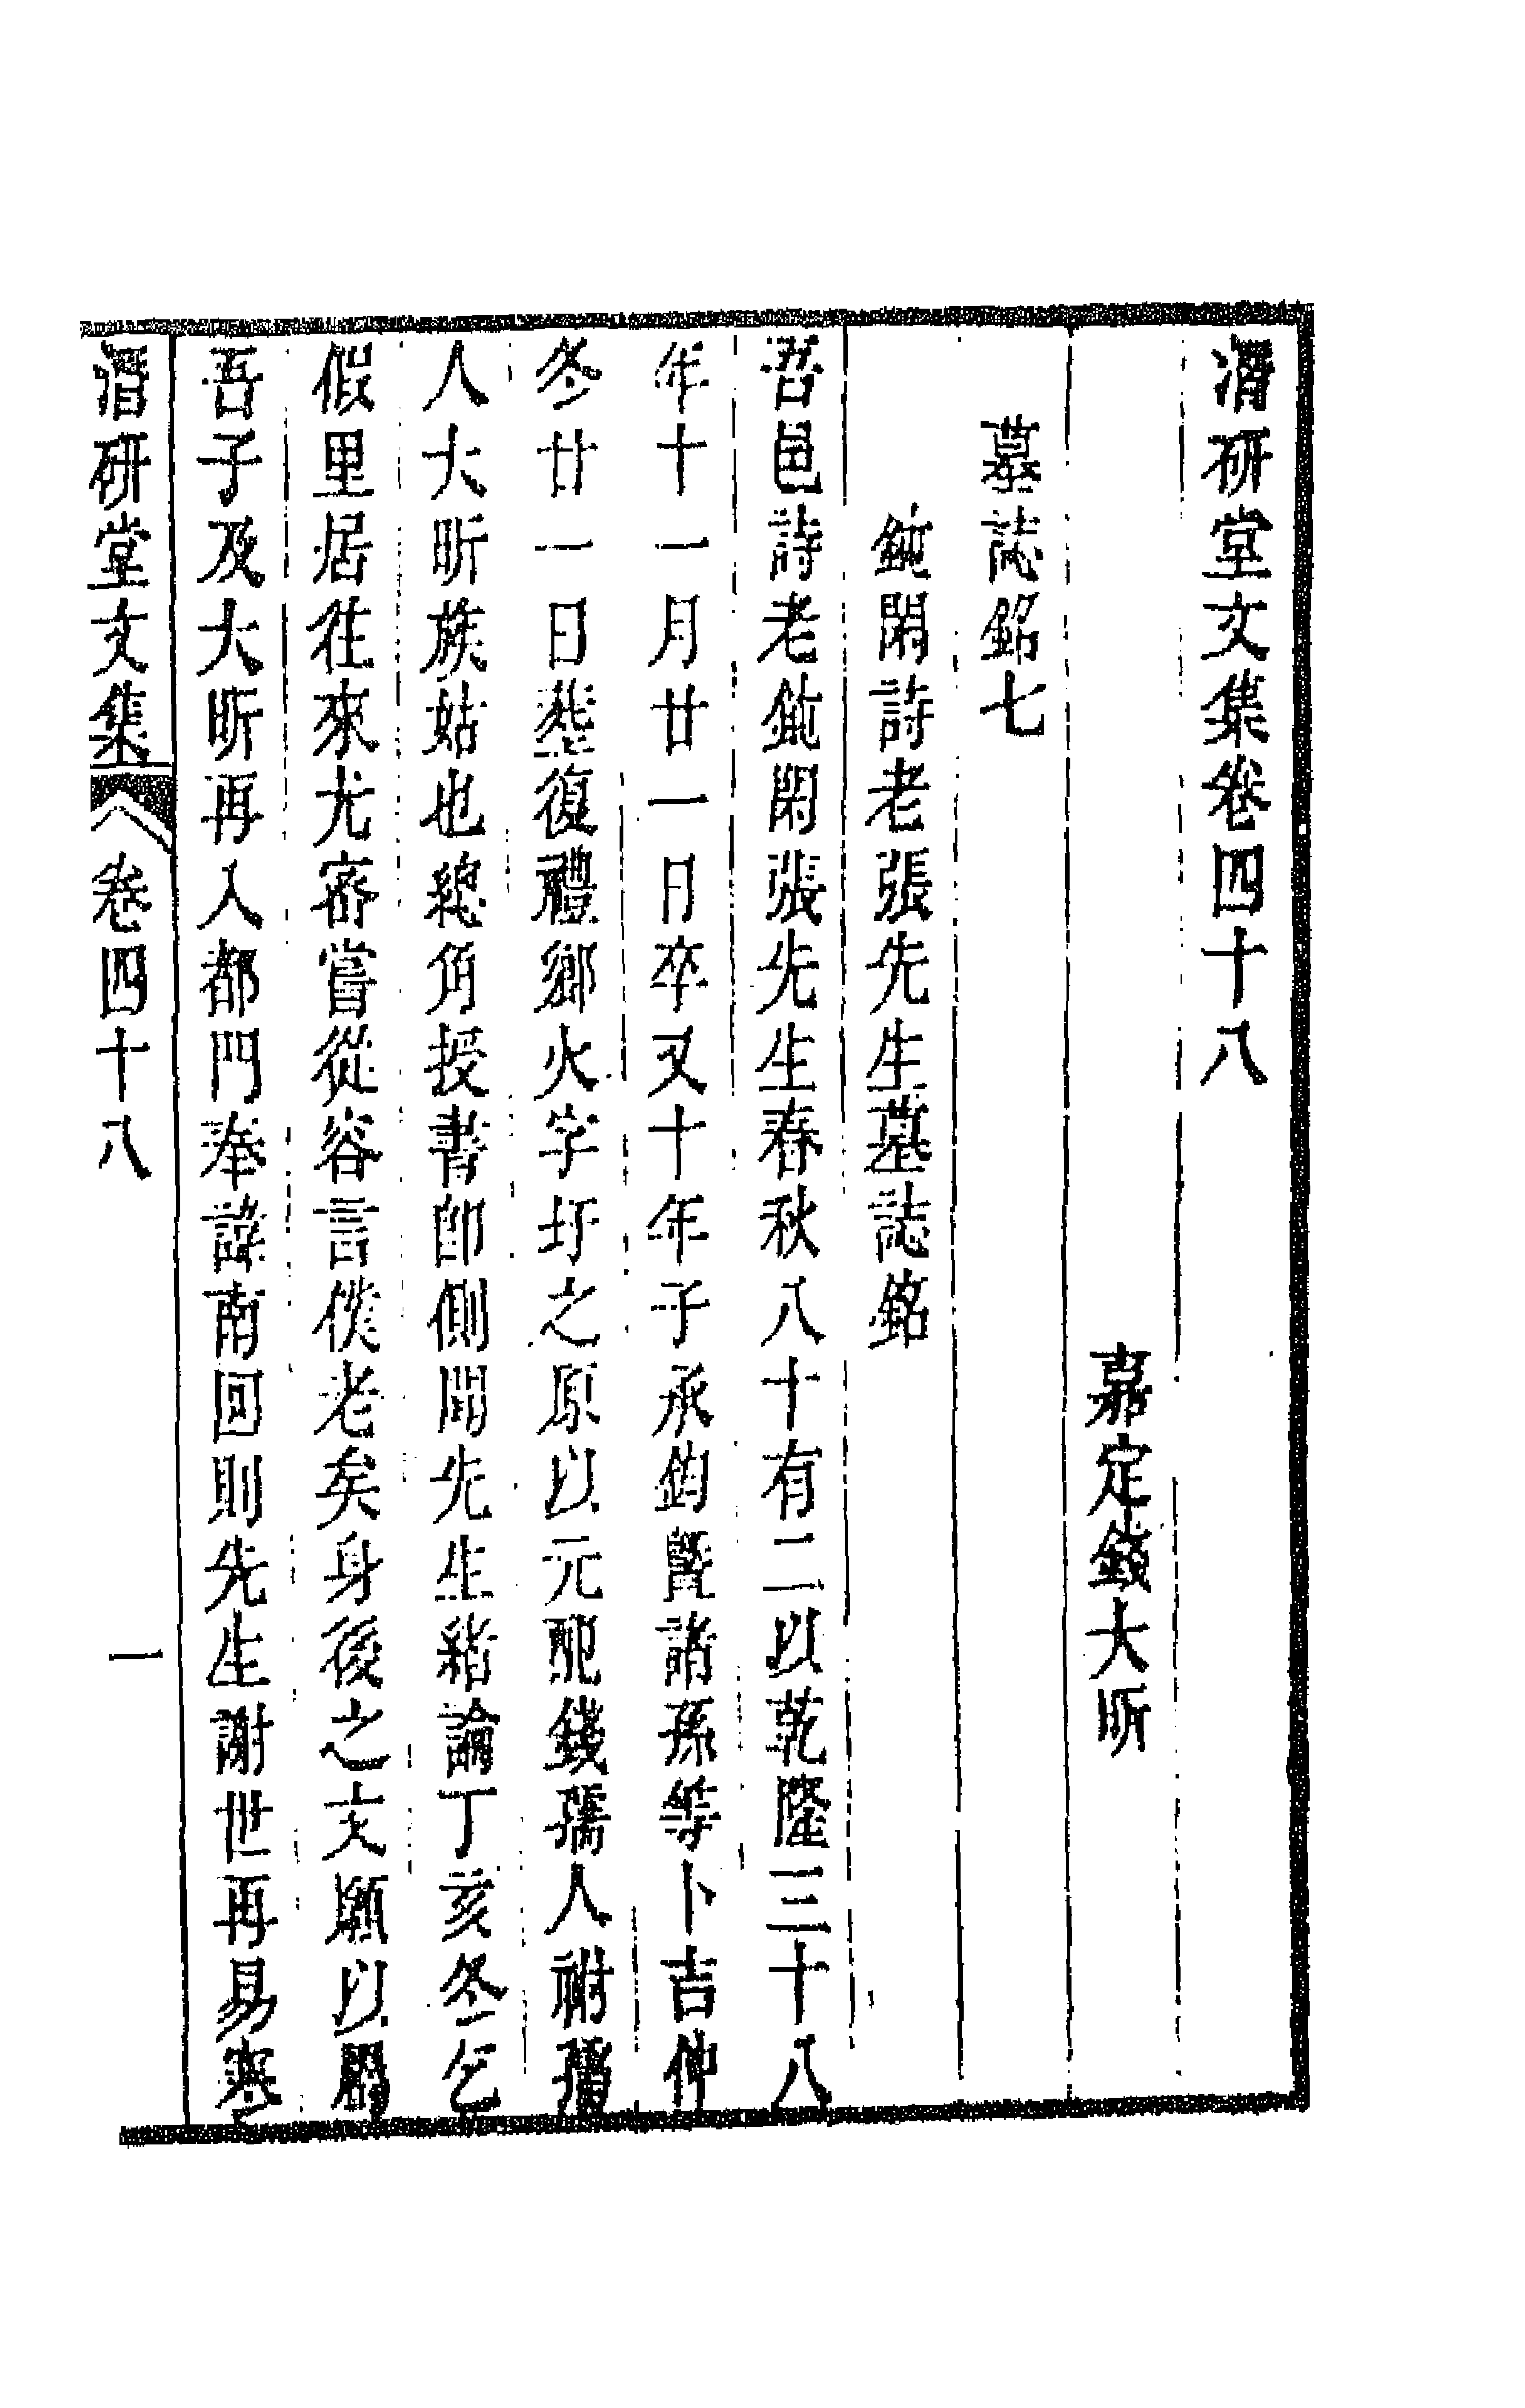 潛研堂文集卷四十八
嘉定錢大昕
墓誌銘七
鈍閑詩老張先生墓誌銘
吾邑詩老鈍閑張先生春秋八十有二以乾隆三十八
年十一月廿一日卒又十年子承鈞暨諸孫等卜吉仲
冬廿一日葬復禮鄉火字圩之原以元配錢孺人祔孺
人大昕族姑也總角授書卽側聞先生緒論丁亥冬乞
假里居往來尤密嘗從容言僕老矣身後之文願以屬
吾子及大昕再入都門奉諱南回則先生謝世再易寒
潛研堂文集
卷四十八
一